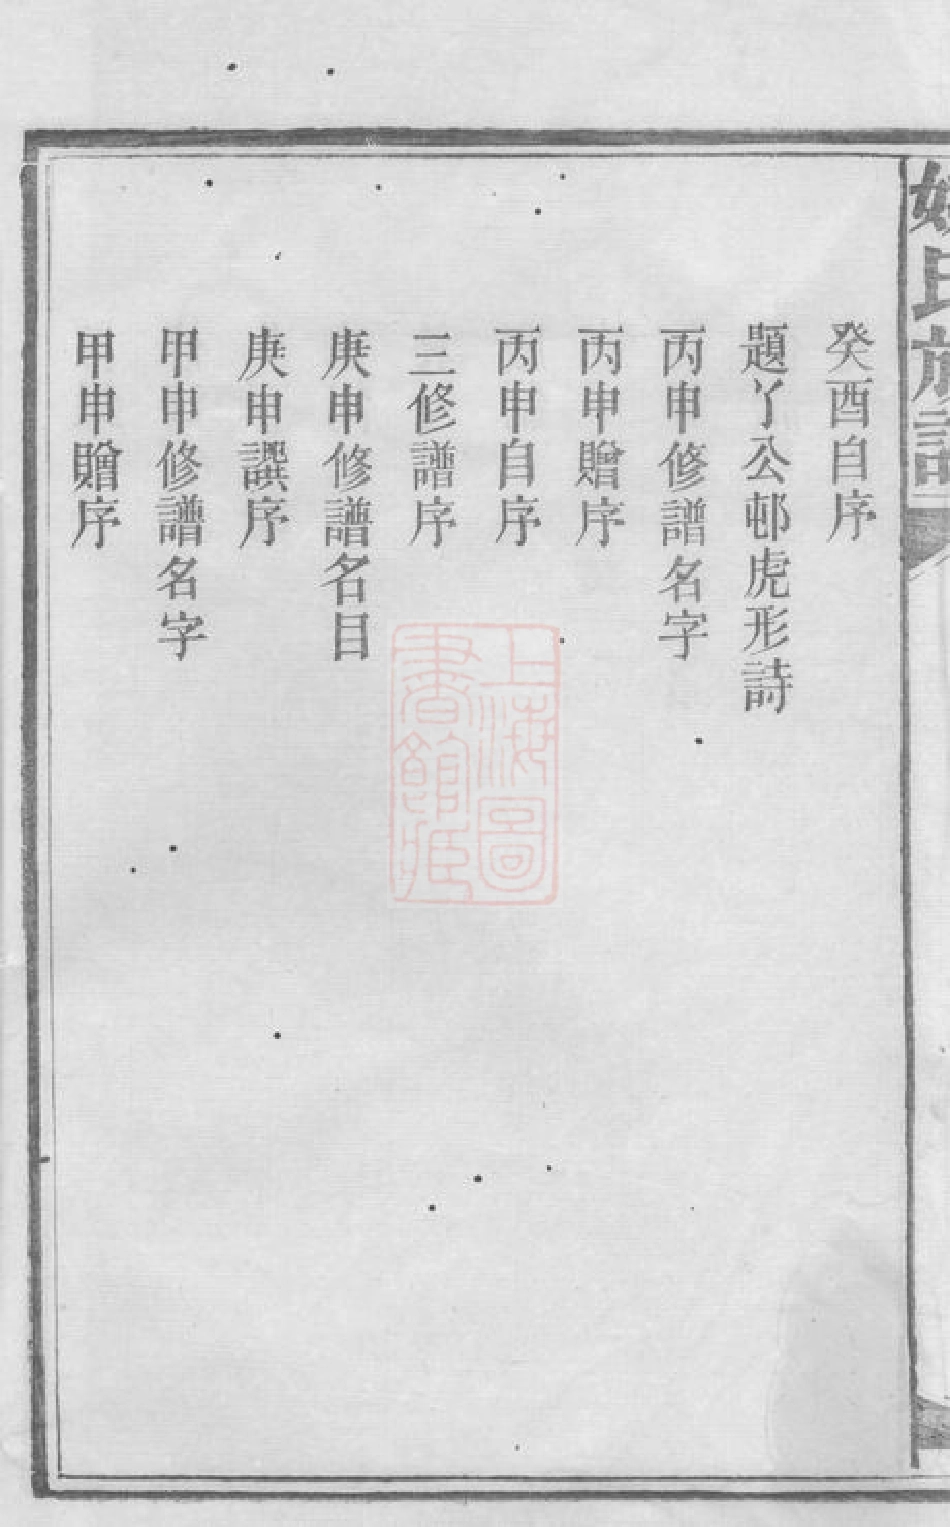 癸酉自序
題丫公邨虎形詩
丙申修譜名字
丙申贈序
丙申自序
三修譜序
庚申修譜名目
庚申譔序
甲申修譜名字
甲申贈序
上海圖
書館藏
氏族譜